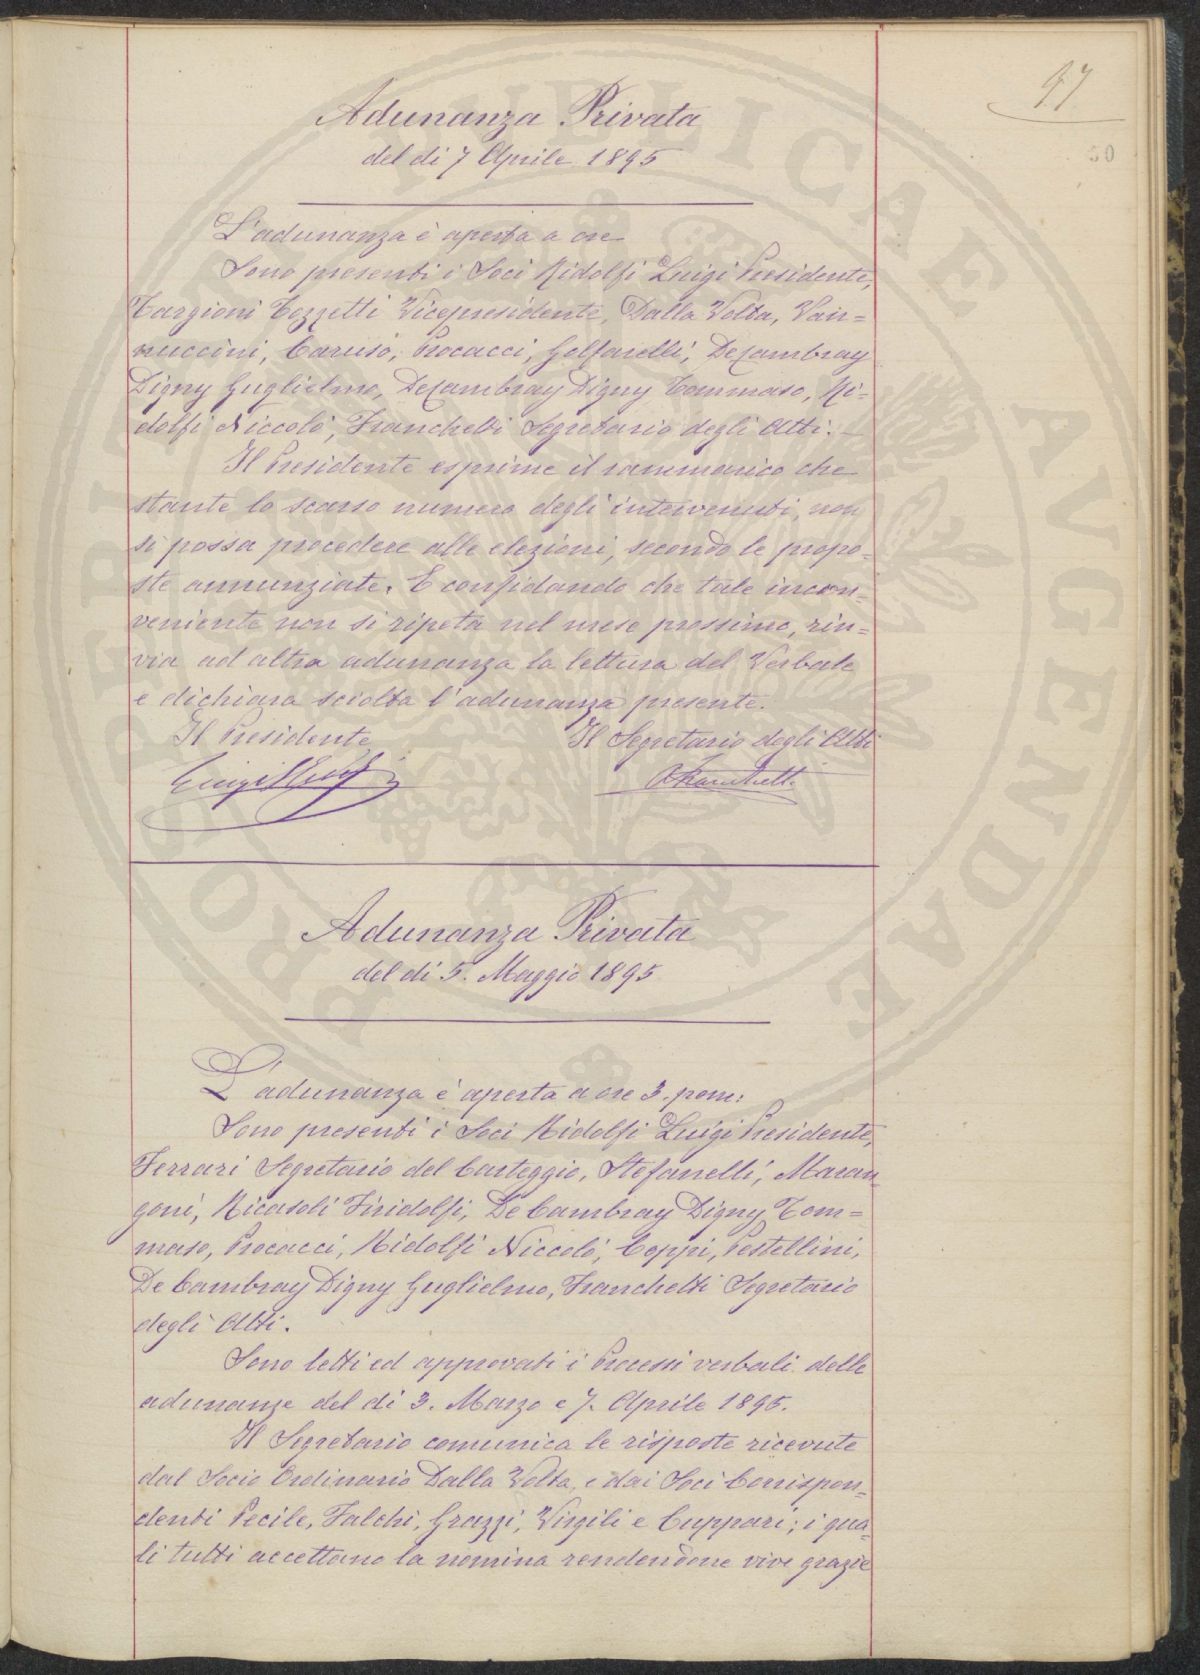 47
50
Adunanza Privata
del dì 7 Aprile 1895
L'adunanza è aperta a ore
Sono presenti i Soci Ridolfi Luigi Presidente,
Targioni Tozzetti Vicepresidente, Dalla Volta, Van=
nuccini, Caruso, Procacci, Golfarelli, DeCambray
Digny Guglielmo, DeCambray Digny Tommaso, Ri=
dolfi Niccolò, Franchetti Segretario degli Atti. —
Il Presidente esprime il rammarico che
stante lo scarso numero degli intervenuti, non
si possa procedere alle elezioni, secondo le propo=
ste annunziate. E confidando che tale incon=
veniente non si ripeta nel mese prossimo, rin=
via ad altra adunanza la lettura del Verbale
e dichiara sciolta l'adunanza presente.
Il Presidente Il Segretario degli Atti
Luigi Ridolfi AFranchetti
Adunanza Privata
del dì 5. Maggio 1895
L'adunanza è aperta a ore 3. pom:
Sono presenti i Soci Ridolfi Luigi Presidente,
Ferrari Segretario del Carteggio, Stefanelli, Maran=
goni, Ricasoli Firidolfi, De Cambray Digny Tom=
maso, Procacci, Ridolfi Niccolò, Coppi, Pestellini,
De Cambray Digny Guglielmo, Franchetti Segretario
degli Atti.
Sono letti ed approvati i Processi verbali delle
adunanze del dì 3. Marzo e 7. Aprile 1895.
Il Segretario comunica le risposte ricevute
dal Socio Ordinario Dalla Volta, e dai Soci Corrispon=
denti Pecile, Falchi, Grazzi, Virgili e Cuppari; i qua=
li tutti accettano la nomina rendendone vive grazie
PROSPERITATI PUBLICAE AVGENDAE